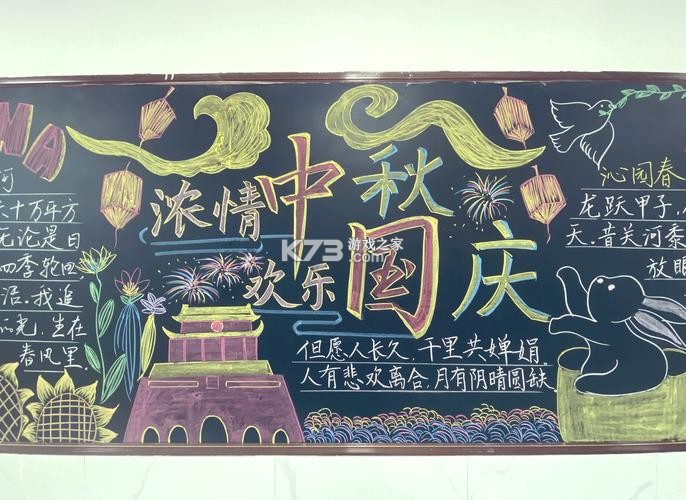 MA
河
六十万平方
无论是日
四季轮回
活,我追
光,生在
春风里.
浓情中秋
欢乐国庆
K73 游戏之家
.com
但愿人长久,千里共婵娟.
人有悲欢离合,月有阴晴圆缺
沁园春
龙跃甲子,
天,昔关河黍
放眼